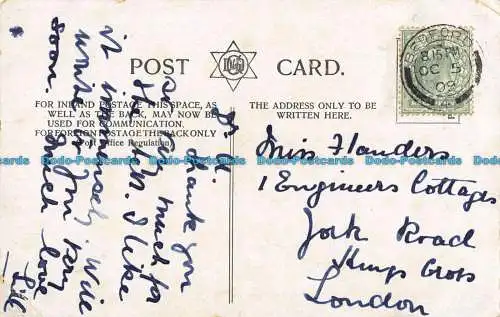 POST CARD.
FOR INLAND POSTAGE THIS SPACE, AS
WELL AS THE BACK, MAY NOW BE
USED FOR COMMUNICATION.
FOR FOREIGN POSTAGE THE BACK ONLY
(Post Office Regulation).
THE ADDRESS ONLY TO BE
WRITTEN HERE.
BEDFORD
8.15 PM
OC 5
09
Dr N.
Thank you
so very much for
the rules. I like
it immensely, will
write to you very
soon. much love
Lil
Miss Flanders
1 Engineers Cottages
York Road
Kings Cross
London
Dodo-Postcards Dodo-Postcards Dodo-Postcards Dodo-Postcards